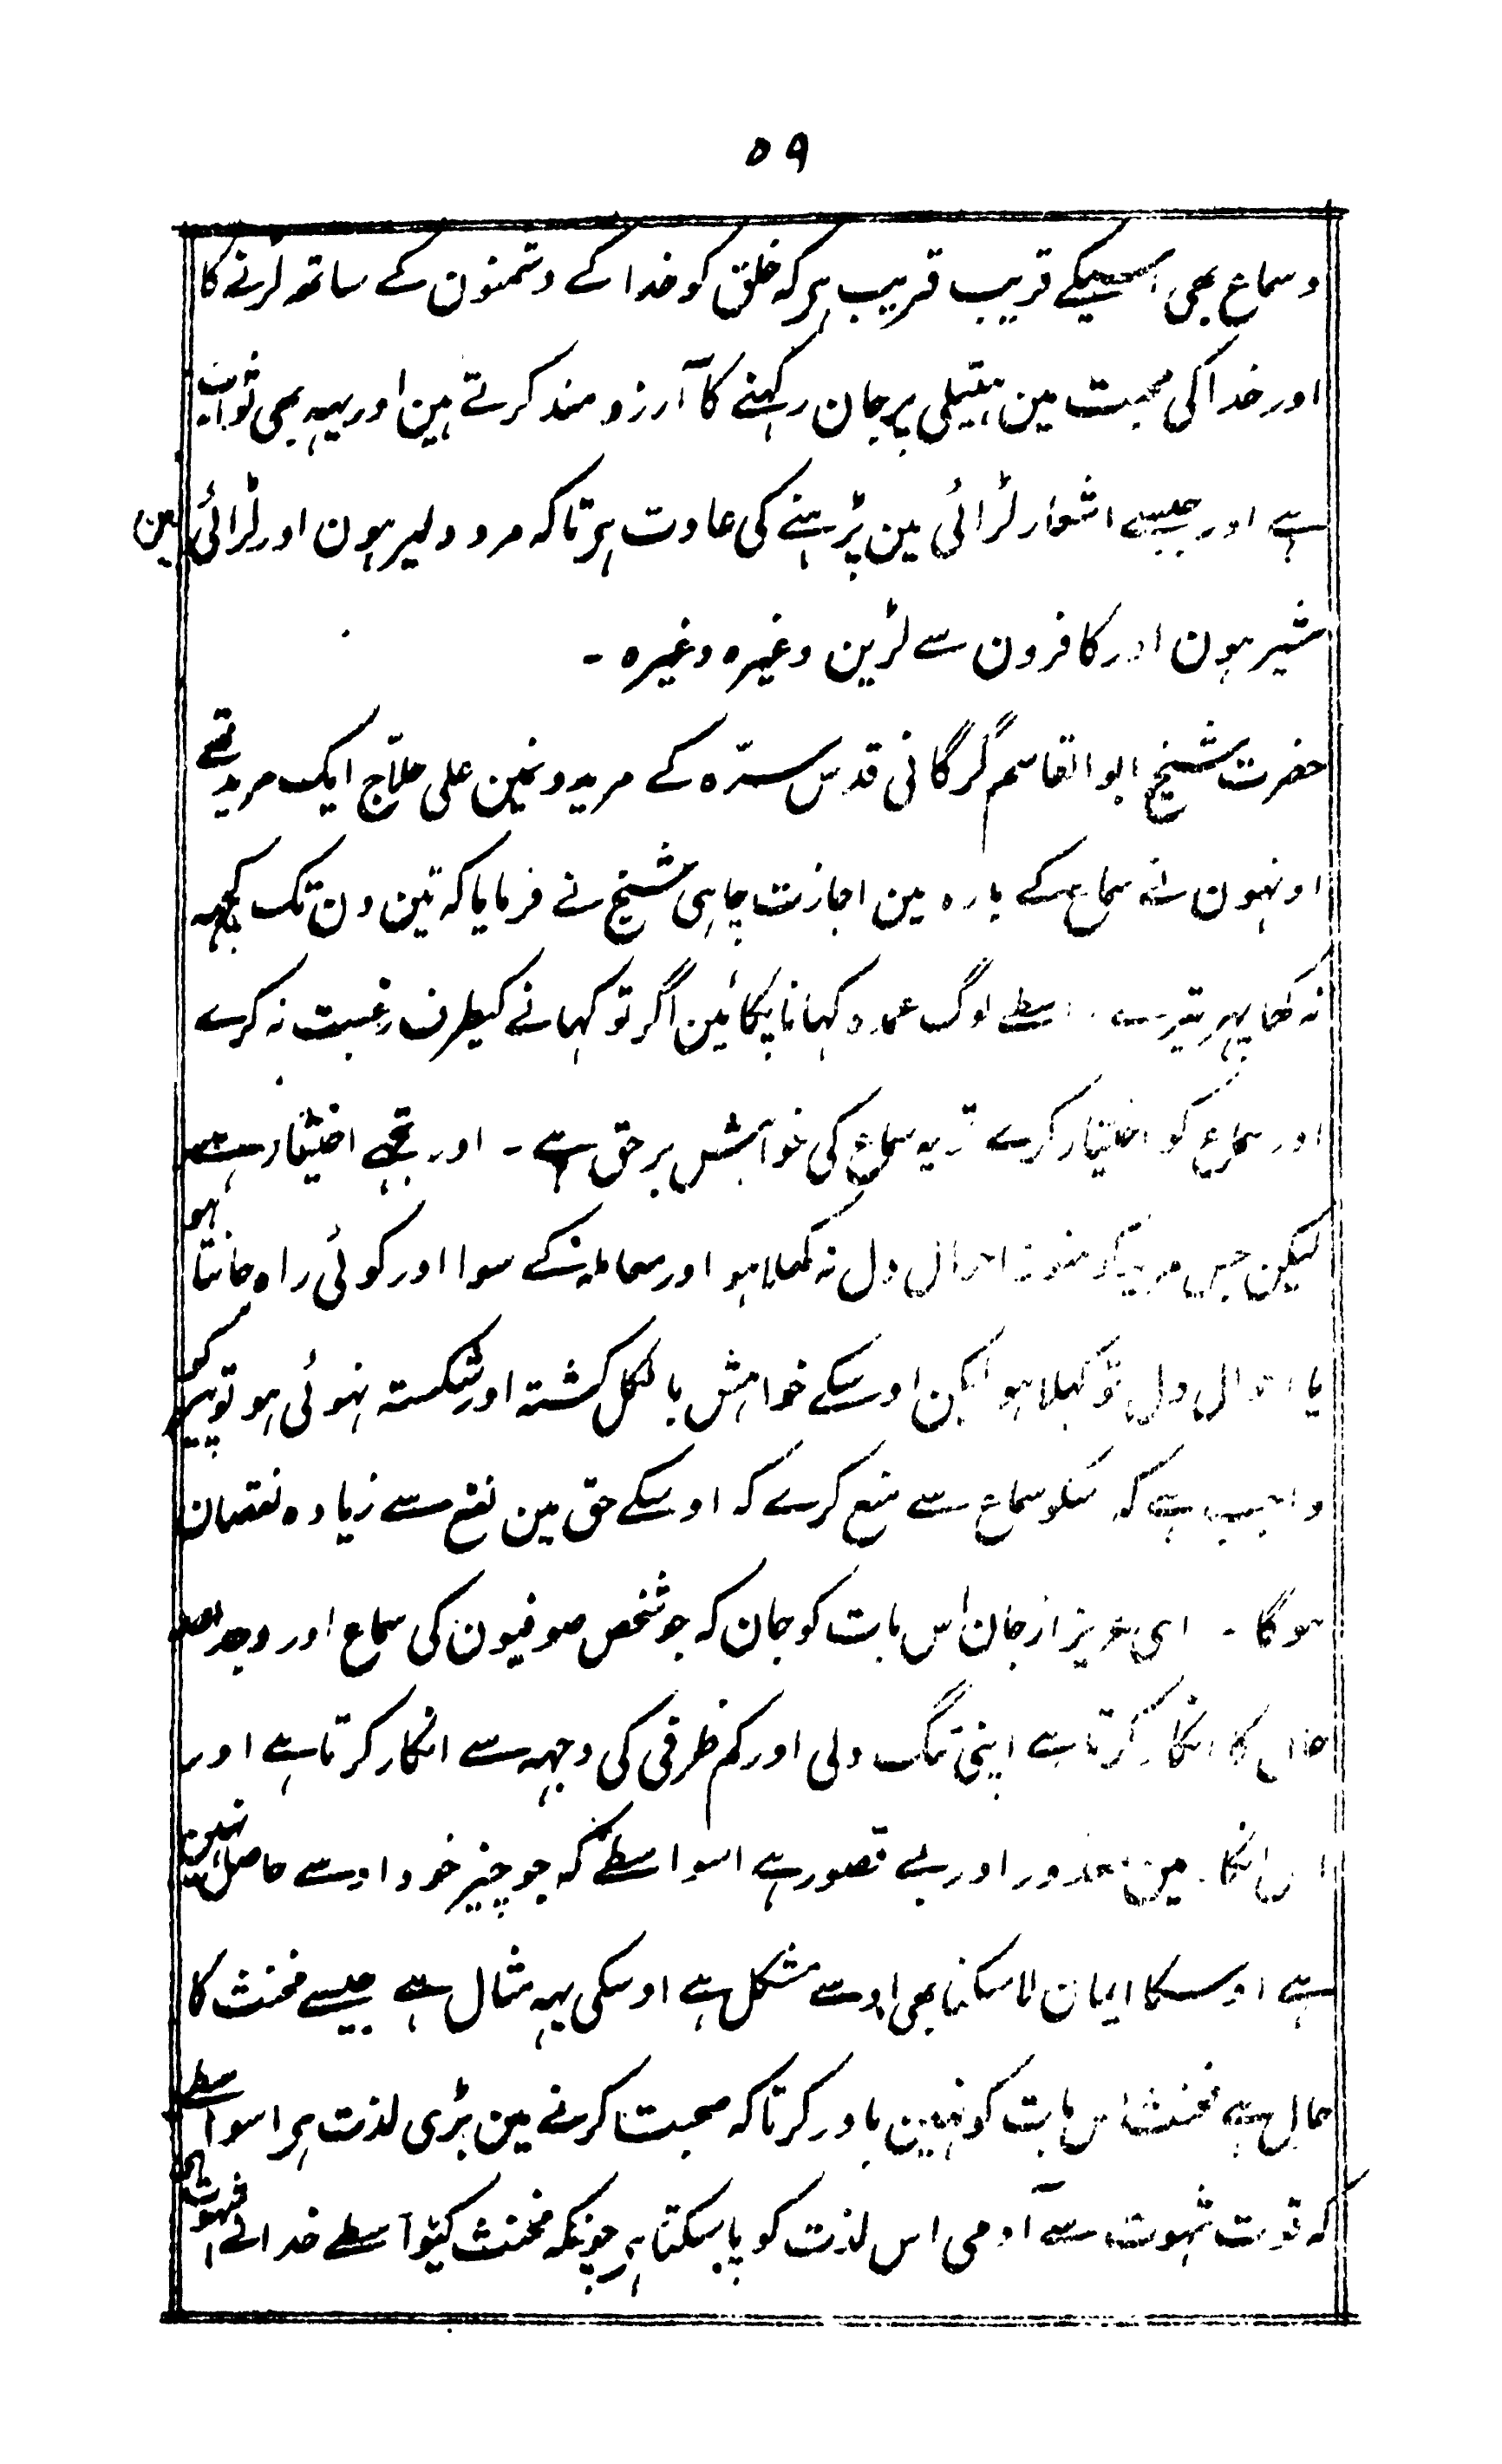 ۵۹
وسماع بھی اسیکے قریب قریب ہر کہ خلق کو خدا کے دشمنون کے ساتھ لرنے کا
اور خدا کی محبت مین ہتیلی پر جان رکہنے کا آرزو مند کرتے ہین اور یہہ بھی ثواب
ہے اور جیسے اشعار لڑائی مین پڑہنے کی عادت ہر تاکہ مرد دلیر ہون اور لڑائی مین
شیر ہون اور کافرون سے لڑین وغیرہ وغیرہ -
حضرت شیخ ابو القاسم گرگانی قدس سرّہ کے مریدونمین علی حلاّج ایک مرید تھے
اونہون نے سماع کے بارہ مین اجازت چاہی شیخ نے فرمایا کہ تین دن تک کچھہ
نہ کھا پہر تیرے واسطے لوگ عمدہ کہانا پکائین اگر تو کہانے کیطرف رغبت نہ کرے
اور سماع کو اختیار کرے تو یہ سماع کی خواہش برحق ہے - اور تجھے اختیار ہے
لیکن جس مرید کو ہنوز احوال دل نہ کھلا ہو اور معاملہ کے سوا اور کوئی راہ جانتا ہو
یا احوال دل تو کہلا ہو لیکن اوسکے خواہش بالکل کشتہ اور شکستہ نہوئی ہو تو پیر کو
واجب ہے کہ اسکو سماع سے منع کرے کہ اوسکے حق مین نفع سے زیادہ نقصان
ہوگا - ای عزیز از جان اس بات کو جان کہ جو شخص صوفیون کی سماع اور وجد اور
حال کا انکار کرتا ہے اپنی تنگ دلی اور کم ظرفی کی وجہہ سے انکار کرتا ہے اور
اس انکار مین معذور اور بے قصور ہے اسواسطے کہ جو چیز خود اوسے حاصل نہین
ہے اوسکا ایمان لا سکنا بھی اوسے مشکل ہے اوسکی یہہ مثال ہے جیسے مخنث کا
حال ہے مخنث اس بات کو نہین باور کرتا کہ صحبت کرنے مین بڑی لذت ہر اسواسطے
کہ قوت شہوت سے آدمی اس لذت کو پا سکتا ہر چونکہ مخنث کیواسطے خدا نے شہوت ہی